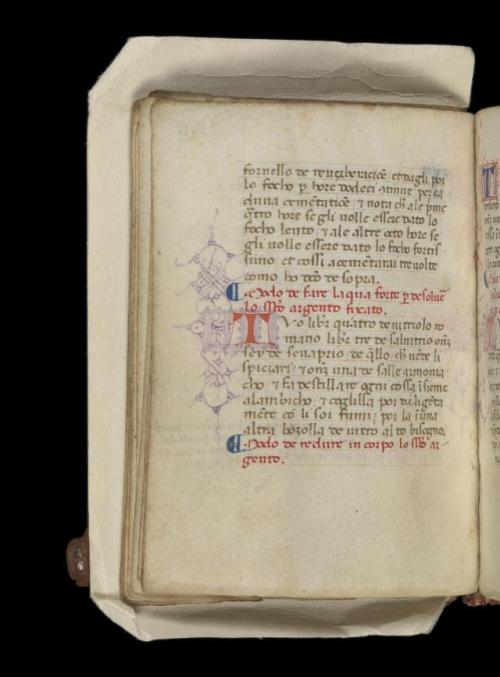 fornello de reuerberacioē: et dagli poi
lo focho p hore dodeci ↄtinue per ca
duna cemētatiōe: & nota ch ale pme
q̄tro hore se gli uolle essere dato lo
focho lento: & ale altre octo hore se
gli uolle essere dato lo focho fortis-
simo. et cossi acementarai tre uolte
como ho dc̄o de sopra.
Modo de fare laqua forte p desolue
lo sp̄o argento fixato.
To libr quatro de uitriolo ro
mano libr tre de salnitrio onz
sey de senaprio, de q̄llo ch uēde li
spiciari: & onz una de salle armonia
cho, & fa destillare ogni cossa īsieme
alambicho, & coglilla por diligēta
mēte cō li soi fumi, por la īuna
altra bozolla de uitro al to bisogno.
Modo de redure in corpo lo sp̄o ar-
gento.